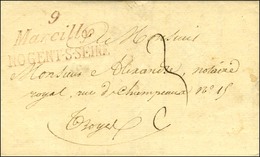 9
Marcilly
NOGENT-S-SEINE
Monsieur
Monsieur Alexandre, notaire
royal, rue de Champeaux n° 15
Troyes